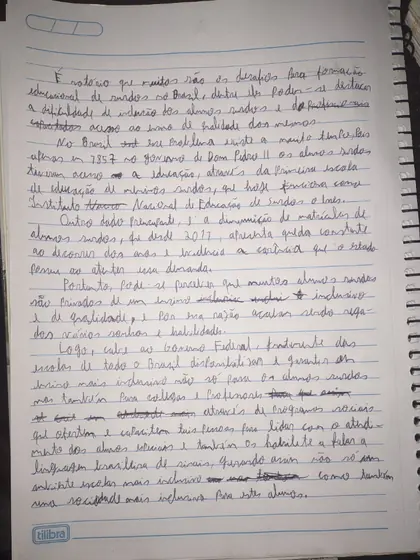 É notório que muitos são os desafios para formação
educacional de surdos no Brasil, dentre eles podem-se destacar
a dificuldade de inclusão dos alunos surdos e do
acesso ao ensino de qualidade dos mesmos.
No Brasil esse problema existe a muito tempo, pois
apenas em 1857 no governo de Dom Pedro II os alunos surdos
tiveram acesso a educação, através da primeira escola
de educação de meninos surdos, que hoje funciona como
Instituto Nacional de Educação de surdos o Ines.
Outro dado principal, é a diminuição de matrículas de
alunos surdos, que desde 2011, apresenta queda constante
ao decorrer dos anos e evidencia a carência que o estado
possui ao atender essa demanda.
Portanto, pode se perceber que muitos alunos surdos
são privados de um ensino inclusivo
e de qualidade, e por essa razão acabam sendo
vários sonhos e habilidades.
Logo, cabe ao Governo Federal, juntamente das
escolas de todo o Brasil disponibilizar e garantir um
ensino mais inclusivo não só para os alunos surdos
mas também para colegas e professores
através de programas sociais
que ofertem e capacitem tais pessoas para lidar com o atendi-
mento dos alunos especiais e também os habilite a falar a
linguagem brasileira de sinais, gerando assim não só um
ambiente escolar mais inclusivo como também
uma sociedade mais inclusiva para estes alunos.
tilibra